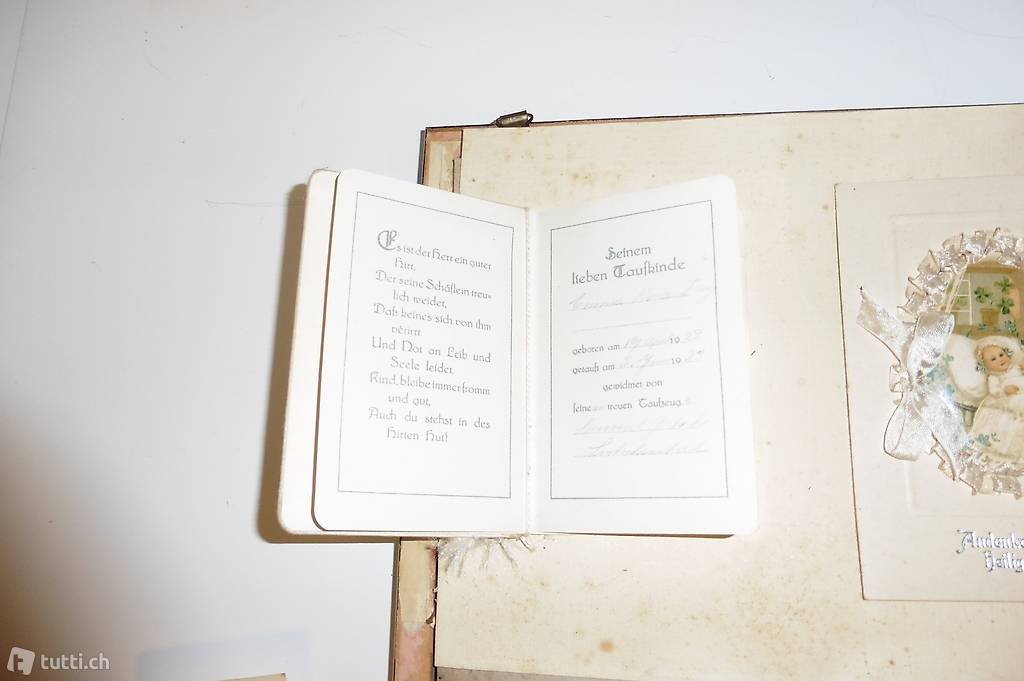 Es ist der Herr ein guter
Hirt,
Der seine Schäflein treu-
lich weidet,
Daß keines sich von ihm
verirrt
Und Not an Leib und
Seele leidet.
Kind, bleibe immer fromm
und gut,
Auch du stehst in des
Hirten Hut!
Seinem
lieben Taufkinde
geboren am 19
getauft am 19
gewidmet von
seine treuen Taufzeug
Andenke
Heilig
tutti.ch